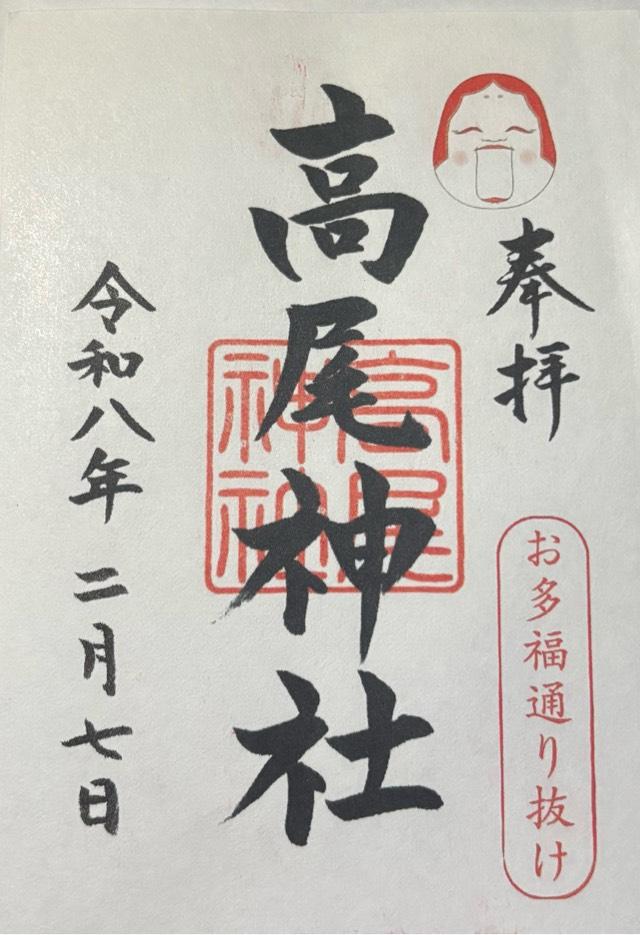 奉拝
お多福通り抜け
高尾神社
高尾
神社
令和八年 二月七日